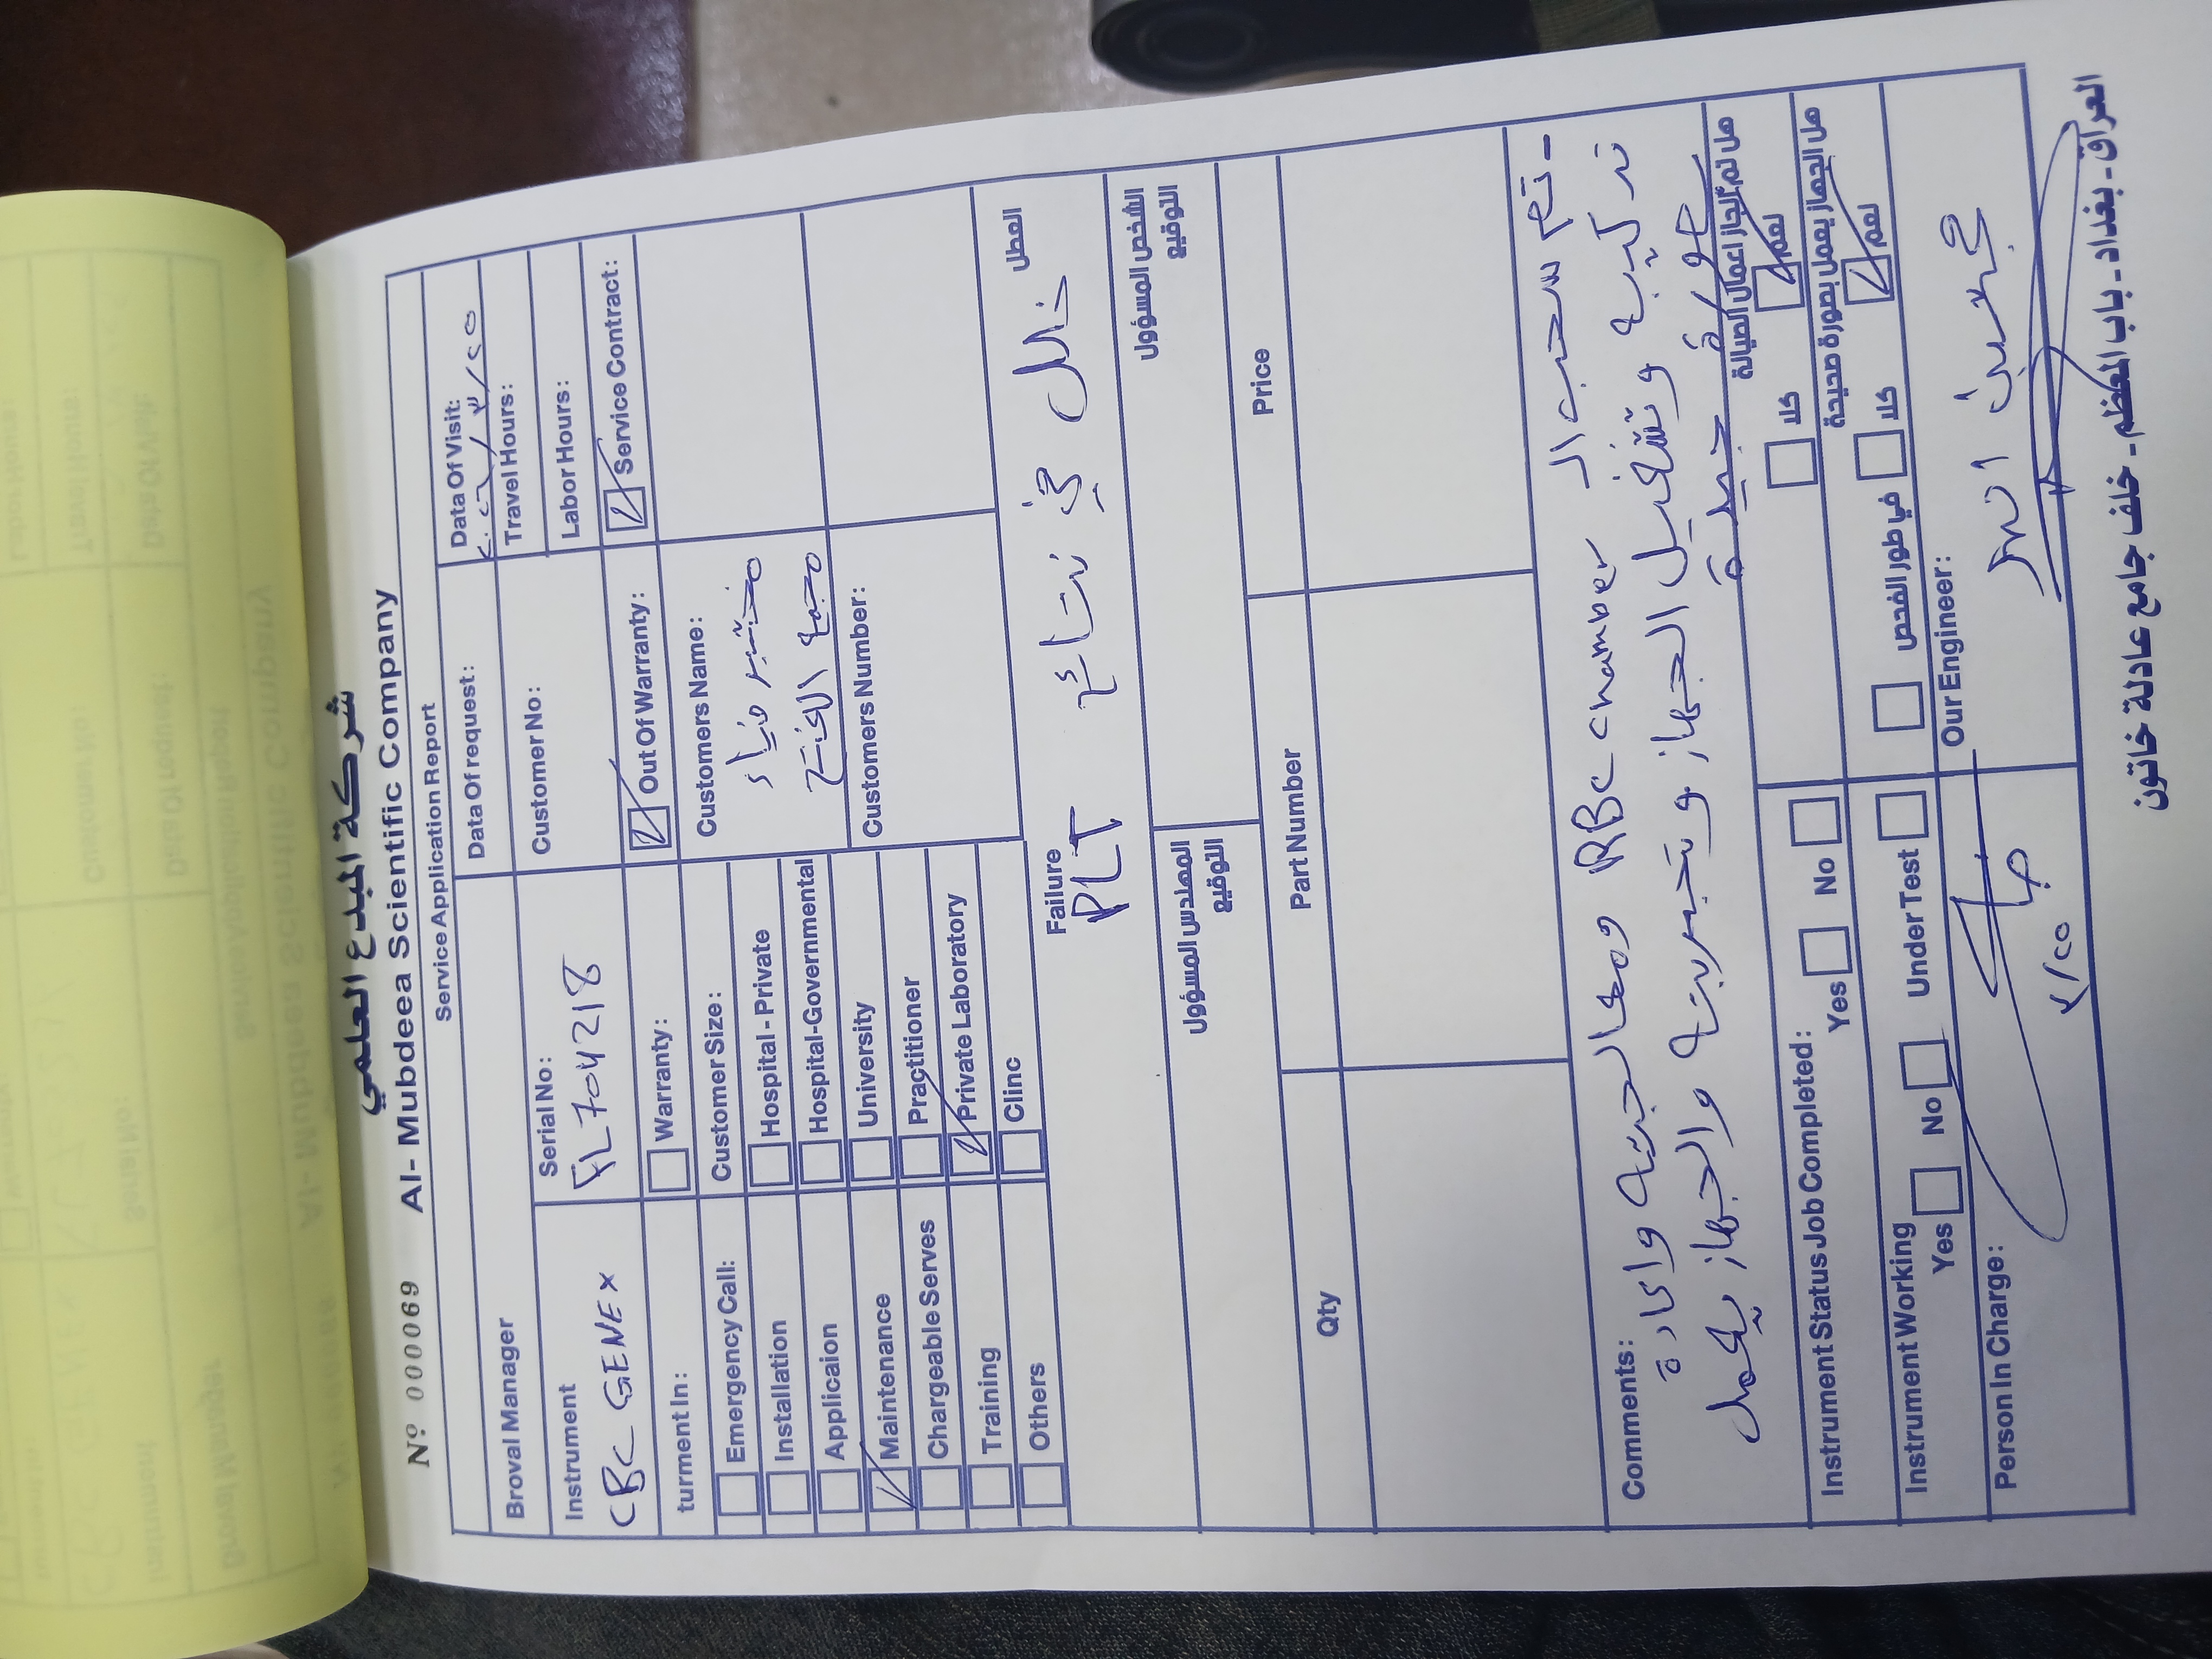 شركة المبدع العلمي
Nº 000069 Al- Mubdeea Scientific Company
Service Application Report
Data Of request: Data Of Visit:
٢٠٢٦/٣/٢٥
Broval Manager Customer No: Travel Hours:
Labor Hours:
Instrument Serial No:
CBC GENEX FL704218
Out Of Warranty: Service Contract:
turment In: Warranty:
Customers Name:
مختبر ضياء
مجمع الفتح
Customers Number:
Customer Size:
Emergency Call: Hospital - Private
Installation Hospital-Governmental
Applicaion University
Maintenance Practitioner
Chargeable Serves Private Laboratory
Training Clinc
Others
Failure العطل
خلل في نتائج PLT
المهندس المسؤول الشخص المسؤول
التوقيع التوقيع
Qty Part Number Price
Comments:
- تم سحب الـ RBC chamber ومعالجته واعادة
تركيبه وتشغيل الجهاز وتجربته والجهاز يعمل
بصورة جيدة
هل تم انجاز اعمال الصيانة
Instrument Status Job Completed:
Yes No كلا نعم
هل الجهاز يعمل بصورة صحيحة
Instrument Working
Yes No Under Test في طور الفحص كلا نعم
Person In Charge: Our Engineer:
٢٥/٣
العراق - بغداد - باب المعظم - خلف جامع عادلة خاتون